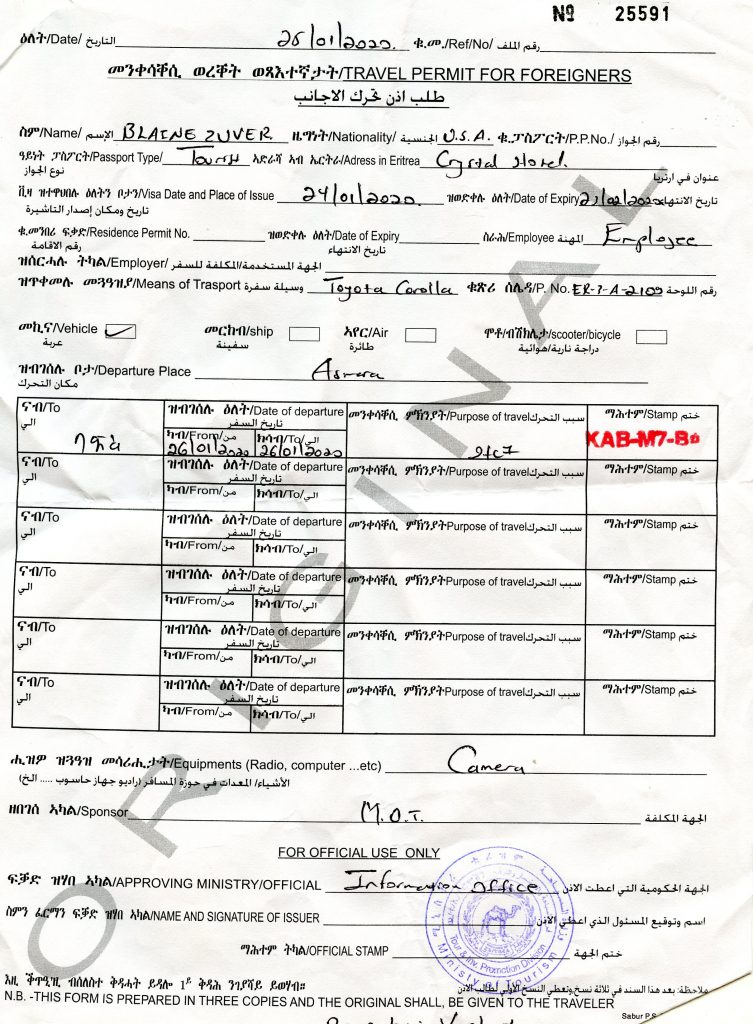 № 25591
ዕለት/Date/ التاريخ 25/01/2020 ቁ.መ./Ref/No/ رقم الملف
መንቀሳቐሲ ወረቐት ወጻእተኛታት/TRAVEL PERMIT FOR FOREIGNERS
طلب اذن تحرك الاجانب
ስም/Name/ الإسم BLAINE ZUVER. ዜግነት/Nationality/ الجنسية U.S.A. ቁ.ፓስፖርት/P.P.No./ رقم الجواز
ዓይነት ፓስፖርት/Passport Type/ Tourist ኣድራሻ ኣብ ኤርትራ/Adress in Eritrea Crystal Hotel.
نوع الجواز عنوان في ارتريا
ቪዛ ዝተዋህበሉ ዕለትን ቦታን/Visa Date and Place of Issue 24/01/2020 ዝወድቀሉ ዕለት/Date of Expiry تاريخ الانتهاء
تاريخ ومكان إصدار التاشيرة
ቁ.መንበሪ ፍቃድ/Residence Permit No. ዝወድቀሉ ዕለት/Date of Expiry ስራሕ/Employee المهنة Employee
رقم الاقامة تاريخ الانتهاء
ዝሰርሓሉ ትካል/Employer/ الجهة المستخدمة/المكلفة للسفر
ዝጥቀመሉ መጓዓዝያ/Means of Trasport وسيلة سفرة Toyota Corolla ቁጽሪ ሰሌዳ/P. No. ER-7-A-2109 رقم اللوحة
መኪና/Vehicle መርከብ/ship ኣየር/Air ሞቶ/ብሽክሌታ/scooter/bicycle
عربة سفينة طائرة دراجة نارية/هوائية
ዝብገሰሉ ቦታ/Departure Place Asmara
مكان التحرك
ናብ/To ዝብገሰሉ ዕለት/Date of departure መንቀሳቐሲ ምኽንያት/Purpose of travel سبب التحرك ማሕተም/Stamp ختم
الي تاريخ السفر
ካብ/From/من ክሳብ/To/الي KAB-M7-B
26/01/2020 26/01/2020
ናብ/To ዝብገሰሉ ዕለት/Date of departure መንቀሳቐሲ ምኽንያት/Purpose of travel سبب التحرك ማሕተም/Stamp ختم
الي تاريخ السفر
ካብ/From/من ክሳብ/To/الي
ናብ/To ዝብገሰሉ ዕለት/Date of departure መንቀሳቐሲ ምኽንያት/Purpose of travel سبب التحرك ማሕተም/Stamp ختم
الي تاريخ السفر
ካብ/From/من ክሳብ/To/الي
ናብ/To ዝብገሰሉ ዕለት/Date of departure መንቀሳቐሲ ምኽንያት/Purpose of travel سبب التحرك ማሕተም/Stamp ختم
الي تاريخ السفر
ካብ/From/من ክሳብ/To/الي
ናብ/To ዝብገሰሉ ዕለት/Date of departure መንቀሳቐሲ ምኽንያት/Purpose of travel سبب التحرك ማሕተም/Stamp ختم
الي تاريخ السفر
ካብ/From/من ክሳብ/To/الي
ናብ/To ዝብገሰሉ ዕለት/Date of departure መንቀሳቐሲ ምኽንያት/Purpose of travel سبب التحرك ማሕተም/Stamp ختم
الي تاريخ السفر
ካብ/From/من ክሳብ/To/الي
ሒዝዎ ዝጓዓዝ መሳርሒታት/Equipments (Radio, computer ...etc) Camera
الأشياء/ المعدات في حوزة المسافر (راديو جهاز حاسوب ..... الخ)
ዘበገሰ ኣካል/Sponsor M.O.T. الجهة المكلفة
FOR OFFICIAL USE ONLY
ፍቓድ ዝሃበ ኣካል/APPROVING MINISTRY/OFFICIAL Information Office الجهة الحكومية التي اعطت الاذن
ስምን ፊርማን ፍቓድ ዝሃበ ኣካል/NAME AND SIGNATURE OF ISSUER اسم وتوقيع المسئول الذي اعطي الاذن
ማሕተም ትካል/OFFICIAL STAMP ختم الجهة
Tour & Inv. Promotion Division
Ministry of Tourism
እዚ ቅጥዒ'ዚ ብሰለስተ ቅዳሓት ይዳሎ 1ይ ቅዳሕ ንገያሻይ ይወሃብ።
ملاحظة: يعد هذا السند في ثلاثة نسخ وتعطي النسخ الاولي لطالب الاذن
N.B. -THIS FORM IS PREPARED IN THREE COPIES AND THE ORIGINAL SHALL, BE GIVEN TO THE TRAVELER
Sabur P.S.
ORIGINAL